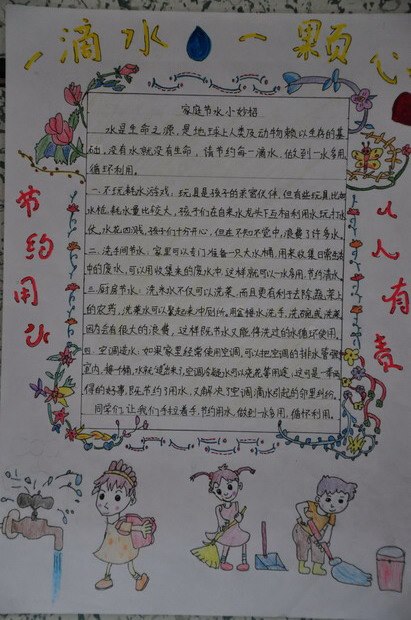 一滴水一颗心
节约用水
人人有责
家庭节水小妙招
水是生命之源,是地球上人类及动物赖以生存的基
础。没有水就没有生命,请节约每一滴水,做到一水多用,
循环利用。
一.不玩耗水游戏:玩具是孩子的亲密伙伴,但有些玩具,比如
水枪,耗水量比较大,孩子们在自来水龙头下互相利用水玩打水
仗、水花四溅,孩子们十分开心,但在不知不觉中,浪费了许多水。
二.洗手间节水:家里可以专门准备一只大水桶,用来收集日常生活
中的废水,可以用收集来的废水冲 这样就可以一水多用,节约清水
三.厨房节水:洗米水不仅可以洗菜,而且更有利于去除蔬菜上
的农药,洗菜水可以聚起来冲厕所。用盆接水洗手,洗碗,或洗菜,
因为会有很大的浪费,这样既节水又能得洗过的水循环使用。
四.空调滴水:如果家里经常使用空调,可以把空调的排水管伸到
室内,接一个桶,水就 空调冷凝水可以浇花等用途,这可是一举两
得的好事,既节约了用水,又解决了空调滴水引起的邻里纠纷。
同学们,让我们手拉着手,节约用水,做到一水多用,循环利用。